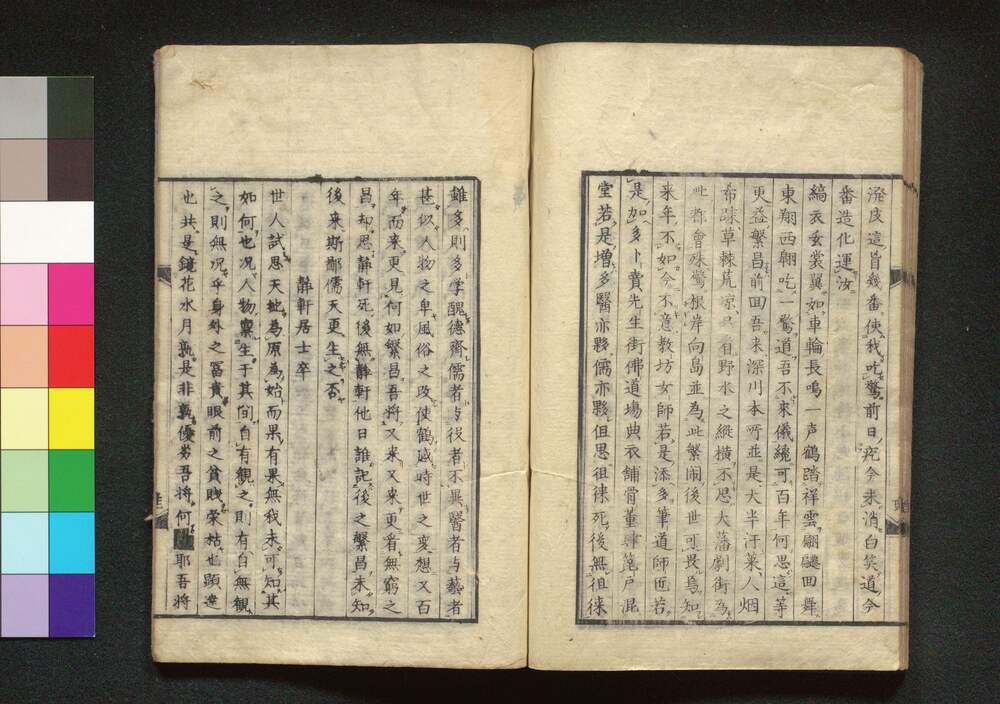 溌皮這旨幾番使我吃驚前日疣今未消白笑道今
番造化運汝
縞衣玄裳翼如車輪長鳴一声鶴踏祥雲翩翻回舞
東翔西翺吃一驚道吾不来儀纔可百年何思這等
更益繁昌前回吾来深川本所並是大半汙萊人烟
希疎草棘荒凉只有野水之縦横不思大藩劇街為
此都會殊驚根岸向島並為此繁閙後世可畏焉知
来年不如今不意教坊女師若是添多筆道師匠若
是加多卜賣先生街佛道塲典衣舗骨董肆蓬戸混
堂若是増多醫亦夥儒亦夥但思徂徠死後無徂徠
雖多則多学醜德齊儒者与役者不異醫者与藝者
甚似人物之卑風俗之改使鶴感時世之変想又百
年而来更見何如繁昌吾將又来又来更看無窮之
昌却思静軒死後無静軒他日誰記後之繁昌未知
後来斯鄙儒天更生之否
静軒居士卒
世人試思天地為原為始而果有果無我未可知其
如何也况人物稟生于其間自有觀之則有自無觀
之則無况乎身外之冨貴眼前之貧賎榮枯也顕達
也共是鏡花水月孰是非孰優劣吾將何耶吾將